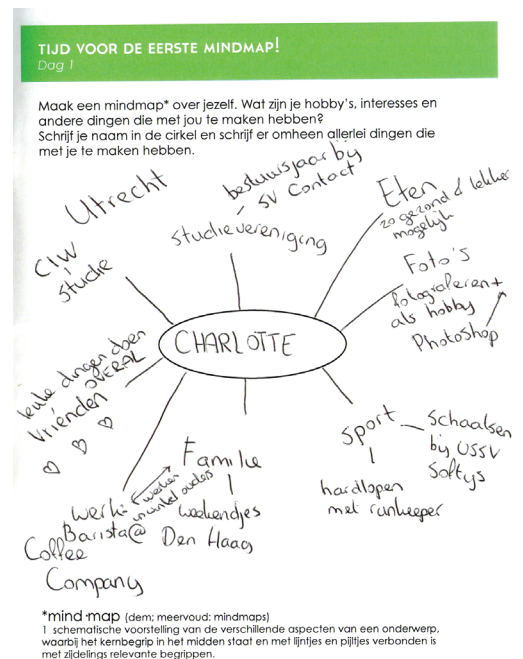 TIJD VOOR DE EERSTE MINDMAP!
Dag 1
Maak een mindmap* over jezelf. Wat zijn je hobby's, interesses en
andere dingen die met jou te maken hebben?
Schrijf je naam in de cirkel en schrijf er omheen allerlei dingen die
met je te maken hebben.
Utrecht
CIW
Studie
bestuursjaar bij
SV Contact
Studievereniging
Eten
zo gezond & lekker
mogelijk
Foto's
fotograferen +
als hobby
Photoshop
CHARLOTTE
leuke dingen doen
OVERAL
Vrienden
Familie
weekendjes
Den Haag
werken
in winkel ouders
werk:
Barista@
Coffee
Company
Sport
Schaatsen
bij USSV
Softys
hardlopen
met runkeeper
*mind·map (dem; meervoud: mindmaps)
1 schematische voorstelling van de verschillende aspecten van een onderwerp,
waarbij het kernbegrip in het midden staat en met lijntjes en pijltjes verbonden is
met zijdelings relevante begrippen.